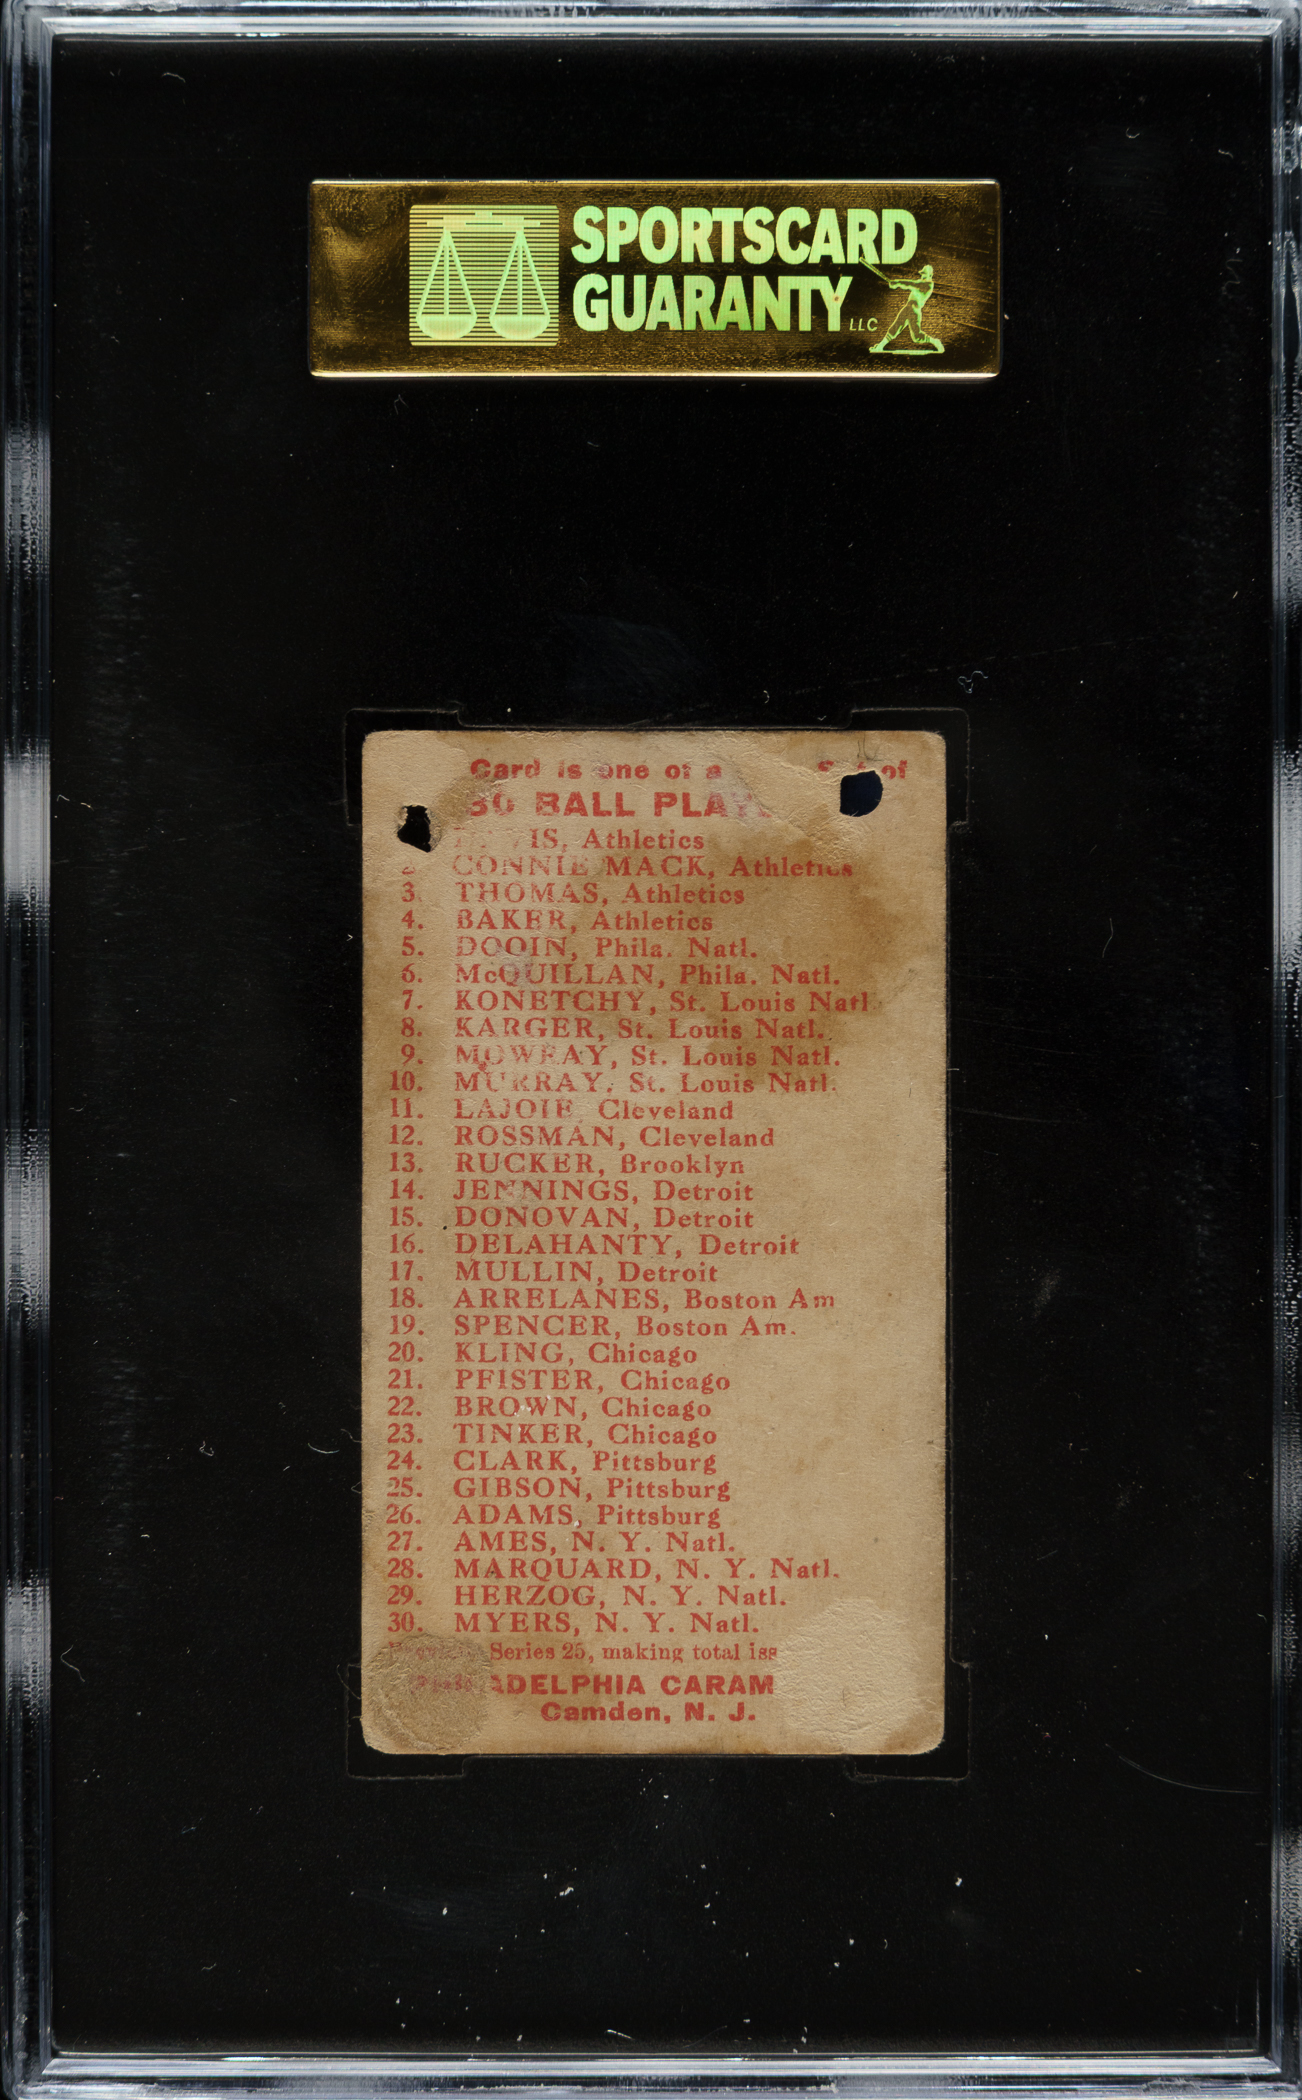 SPORTSCARD
GUARANTY LLC
Card is one of a of
30 BALL PLAY
IS, Athletics
2 CONNIE MACK, Athletics
3. THOMAS, Athletics
4. BAKER, Athletics
5. DOOIN, Phila. Natl.
6. McQUILLAN, Phila. Natl.
7. KONETCHY, St. Louis Natl
8. KARGER, St. Louis Natl.
9. MOWRAY, St. Louis Natl.
10. MURRAY, St. Louis Natl.
11. LAJOIE, Cleveland
12. ROSSMAN, Cleveland
13. RUCKER, Brooklyn
14. JENNINGS, Detroit
15. DONOVAN, Detroit
16. DELAHANTY, Detroit
17. MULLIN, Detroit
18. ARRELANES, Boston Am
19. SPENCER, Boston Am.
20. KLING, Chicago
21. PFISTER, Chicago
22. BROWN, Chicago
23. TINKER, Chicago
24. CLARK, Pittsburg
25. GIBSON, Pittsburg
26. ADAMS, Pittsburg
27. AMES, N. Y. Natl.
28. MARQUARD, N. Y. Natl.
29. HERZOG, N. Y. Natl.
30. MYERS, N. Y. Natl.
Series 25, making total iss
ADELPHIA CARAM
Camden, N. J.